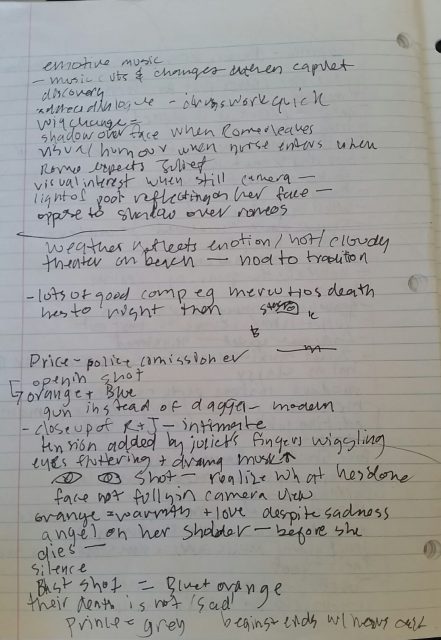 emotive music
- music cuts & changes when capulet
discovery
added dialogue - drugs work quick
wig change =
shadow over face when Romeo leaves
visual humour when nurse enters when
Romeo expects Juliet
visual interest when still camera -
light of pool reflecting on her face -
oppose to shadow over romeos
weather reflects emotion / hot / cloudy
theater on beach - nod to tradition
- lots of good comp eg mercutios death
hes to right then
Price - police comissioner
openin shot
orange + Blue
gun instead of dagger - modern
- close up of R + J - intimate
tension added by juliet's fingers wiggling
eyes fluttering + drama music ↑
shot - realize what hes done
face not fully in camera view
orange = warmth + love despite sadness
angel on her sholder - before she
dies -
silence
last shot = Blue + orange
their death is not 'sad'
Prince = grey begins + ends w/ news